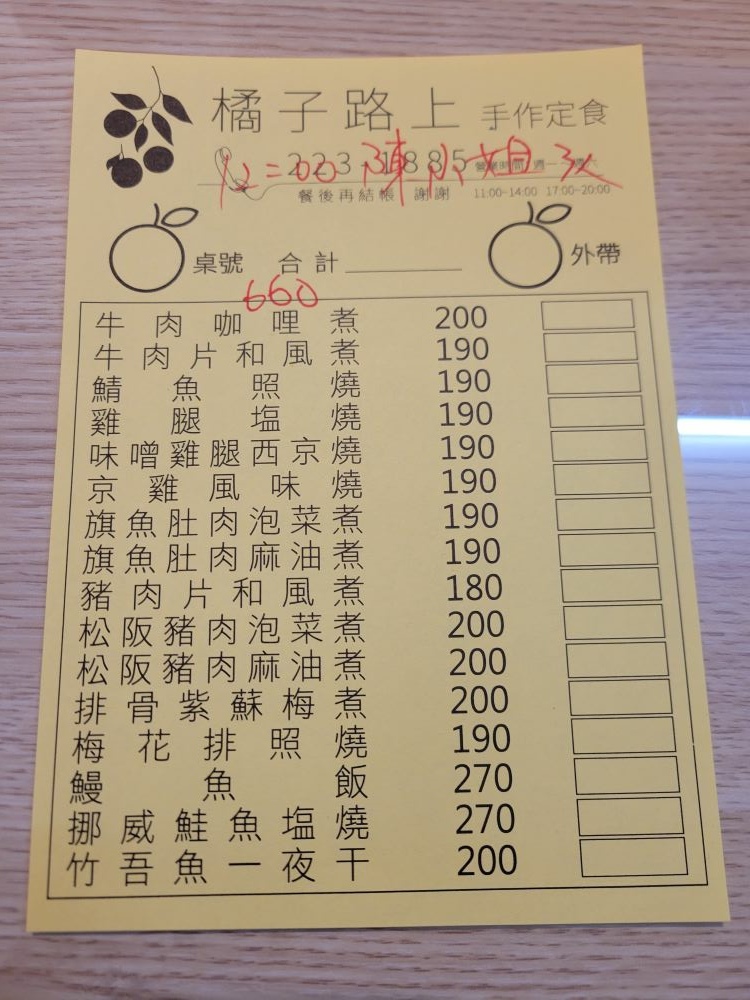 橘子路上 手作定食
223-1885 營業時間 週一~週六
餐後再結帳 謝謝 11:00~14:00 17:00~20:00
12=00 陳小姐 3人
桌號 合計 外帶
660
牛肉咖哩煮 200
牛肉片和風煮 190
鯖魚照燒 190
雞腿塩燒 190
味噌雞腿西京燒 190
京雞風味燒 190
旗魚肚肉泡菜煮 190
旗魚肚肉麻油煮 190
豬肉片和風煮 180
松阪豬肉泡菜煮 200
松阪豬肉麻油煮 200
排骨紫蘇梅煮 200
梅花排照燒 190
鰻魚飯 270
挪威鮭魚塩燒 270
竹吾魚一夜干 200